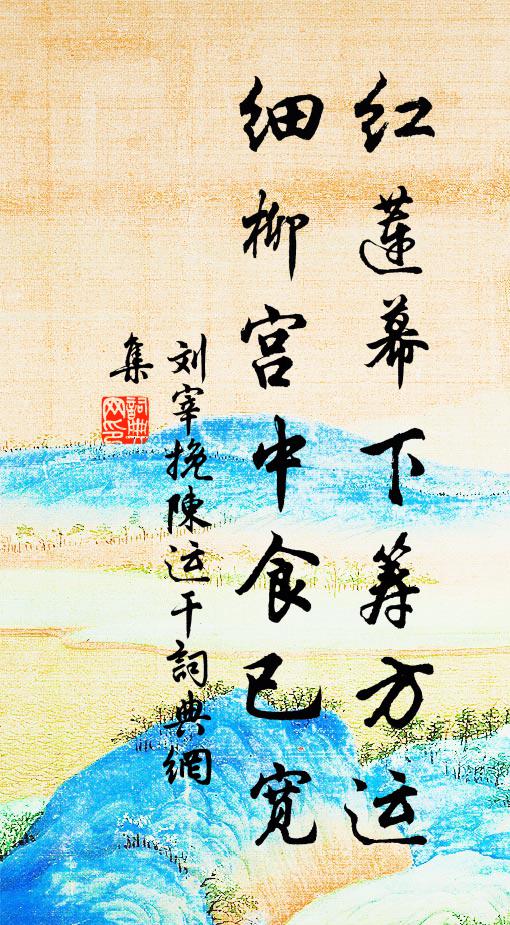 红莲幕下筹方运
细柳宫中食已宽
刘宰挽陳运干詞典網
集
詞典网印